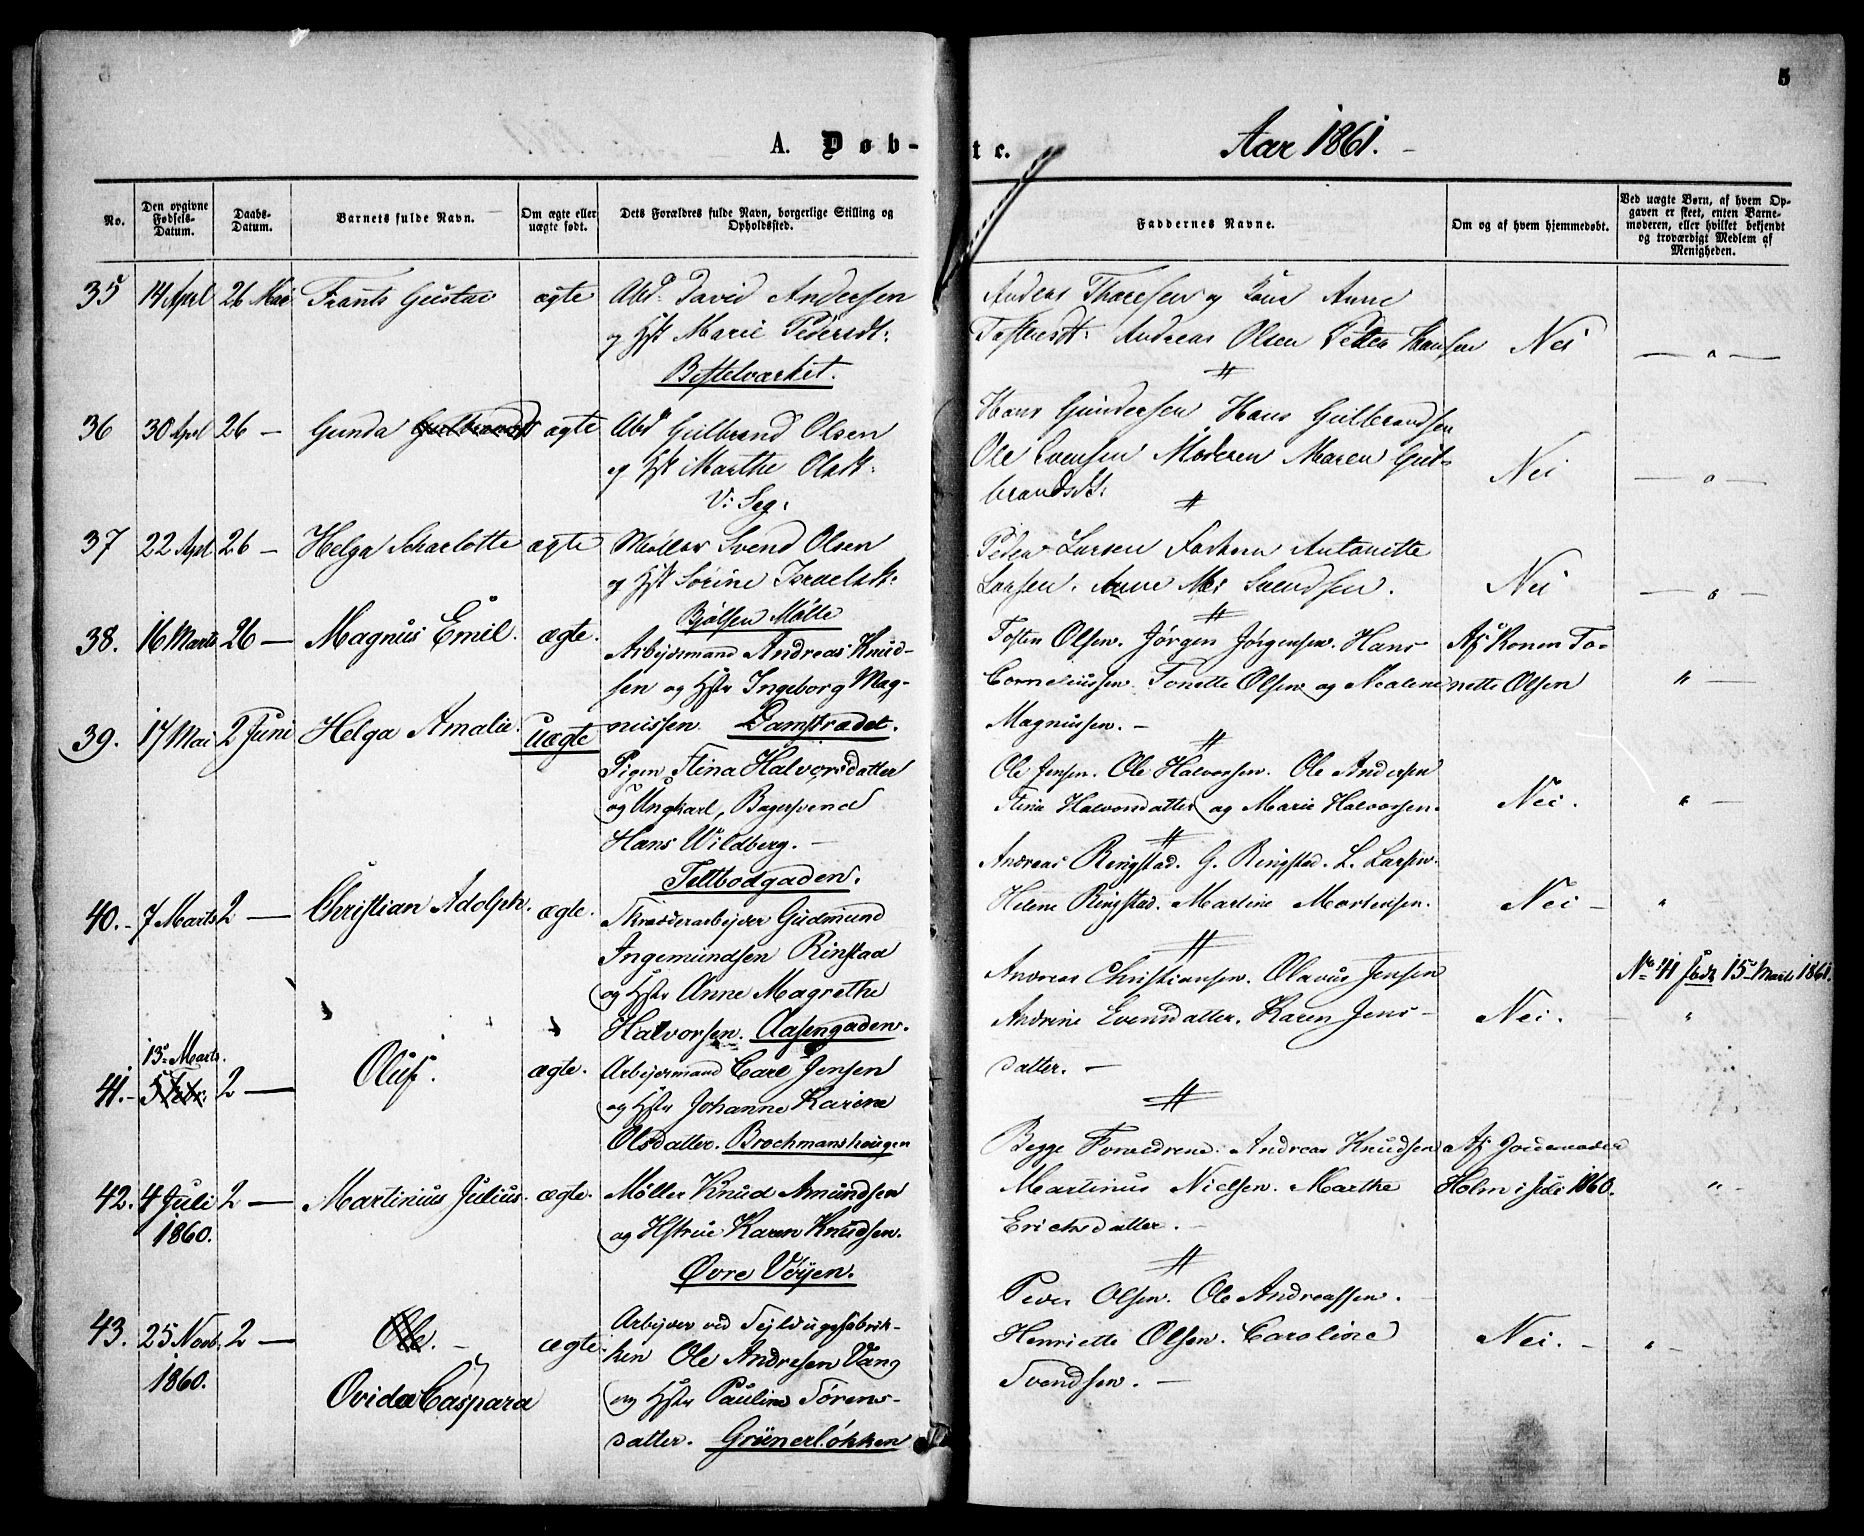 5
A. Døb-
te.
Aar 1861.
No.
Den opgivne Fødsels-Datum.
Daabs-Datum.
Barnets fulde Navn.
Om ægte eller uægte født.
Dets Forældres fulde Navn, borgerlige Stilling og Opholdssted.
Faddernes Navne.
Om og af hvem hjemmedøbt.
Ved uægte Børn, af hvem Op-
gaven er skeet, enten Barne-
moderen, eller hvilket bekjendt
og troværdigt Medlem af
Menigheden.
35 14 April 26 Mai Frants Gustav ægte Abd. David Andersen
og Hst Marie Pedersdt:
Bestelværket.
Anders Thoresen og Kone Anne
Andreas Olsen Petter Hansen Nei — " —
36 30 April 26 — Gunda Gulbrandsdt ægte Abd Gulbrand Olsen
og Hst Marthe Olsdt:
V: Seg:
Hans Gundersen Hans Gulbrandsen
Ole Evensen Moderen Maren Gul-
brandsdt: Nei — " —
37 22 Apl 26 — Helga Scharlotte ægte Møller Svend Olsen
og Hst Sörine Israelsdt:
Bjølsen Mølle
Peder Larsen Antonette
Larsen. Anne Svendsen. Nei — " —
38. 16 Marts 26 — Magnus Emil. ægte. Arbeidsmand Andreas Knud-
sen og Hstr Ingeborg Mag-
nussen. Damstrædet.
Tosten Olsen. Jørgen Jørgensen. Hans
Corneliussen. Tonette Olsen og Nealene
Magnussen. —
Af Konen To-
nette Olsen " —
39. 17 Mai 2 Juni Helga Amalie. uægte Pigen Stina Halvorsdatter
og Ungkarl, Bagersvend
Hans Wildberg. —
Teltbodgaden.
Ole Jensen. Ole Halvorsen. Ole Andersen
Stine Halvorsdatter og Marie Halvorsen. Nei. " —
40. 7 Marts 2 — Christian Adolph. ægte. Gudmund
Ingemundsen Rinstad
og Hstr Anne Magrethe
Halvorsen. Aasengaden.
Andreas Ringstad. G. Ringstad. L. Larsen.
Helene Ringstad. Martine Mortensen. Nei — "
41. 15 Marts.
5 Febr. 2 — Oluf. ægte. Arbeidsmand Carl Jensen
og Hstr Johanne Karine
Olsdatter. Brochmanshougen
Andreas Christiansen. Olavus Jensen
Andrine Evensdatter. Karen Jens-
datter. — Nei. — "
No 41 født 15 Marts 1861.
42. 4 Juli
1860. 2 — Martinius Julius. ægte. Møller Knud Amundsen
og Hstrue Karen Knudsen.
Øvre Vøyen.
Begge Forældrene. Andreas Knudsen
Martinus Nielsen. Marthe
Erichsdatter. —
Af Jordemoder
Holm i Juli 1860. " —
43. 25 Novb.
1860. 2 — Ole. —
Ovida Caspara ægte. Arbeider ved Seildugsfabrik-
ken Ole Andresen Vang
og Hstr Pauline Sørens-
datter. Grünerløkken
Peder Olsen. Ole Andreassen.
Henriette Olsen. Caroline
Svendsen. — Nei. — " —